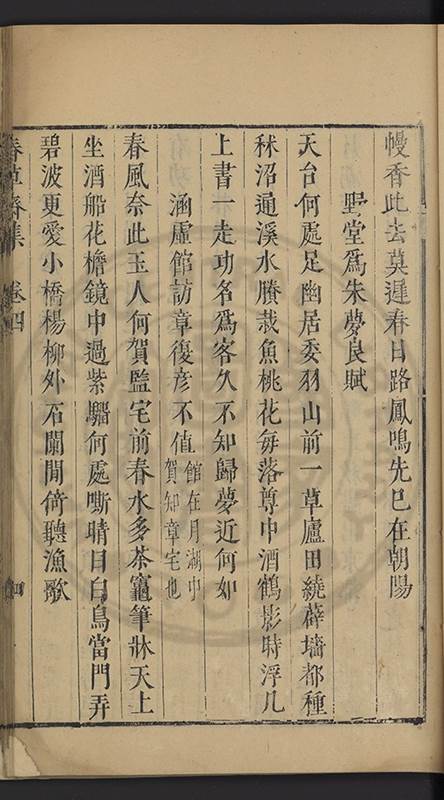 幔香此去莫遲春日路鳳鳴先已在朝陽
野堂爲朱夢良賦
天台何處足幽居委羽山前一草廬田繞薜墻都種
秫沼通溪水賸栽魚桃花每落尊中酒鶴影時浮几
上書一走功名爲客久不知歸夢近何如
涵虛館訪章復彦不值館在月湖中賀知章宅也
春風奈此玉人何賀監宅前春水多茶竈筆牀天上
坐酒船花檐鏡中過紫騮何處嘶晴日白鳥當門弄
碧波更愛小橋楊柳外石闌閒倚聽漁歌
春草齋集 卷四 四